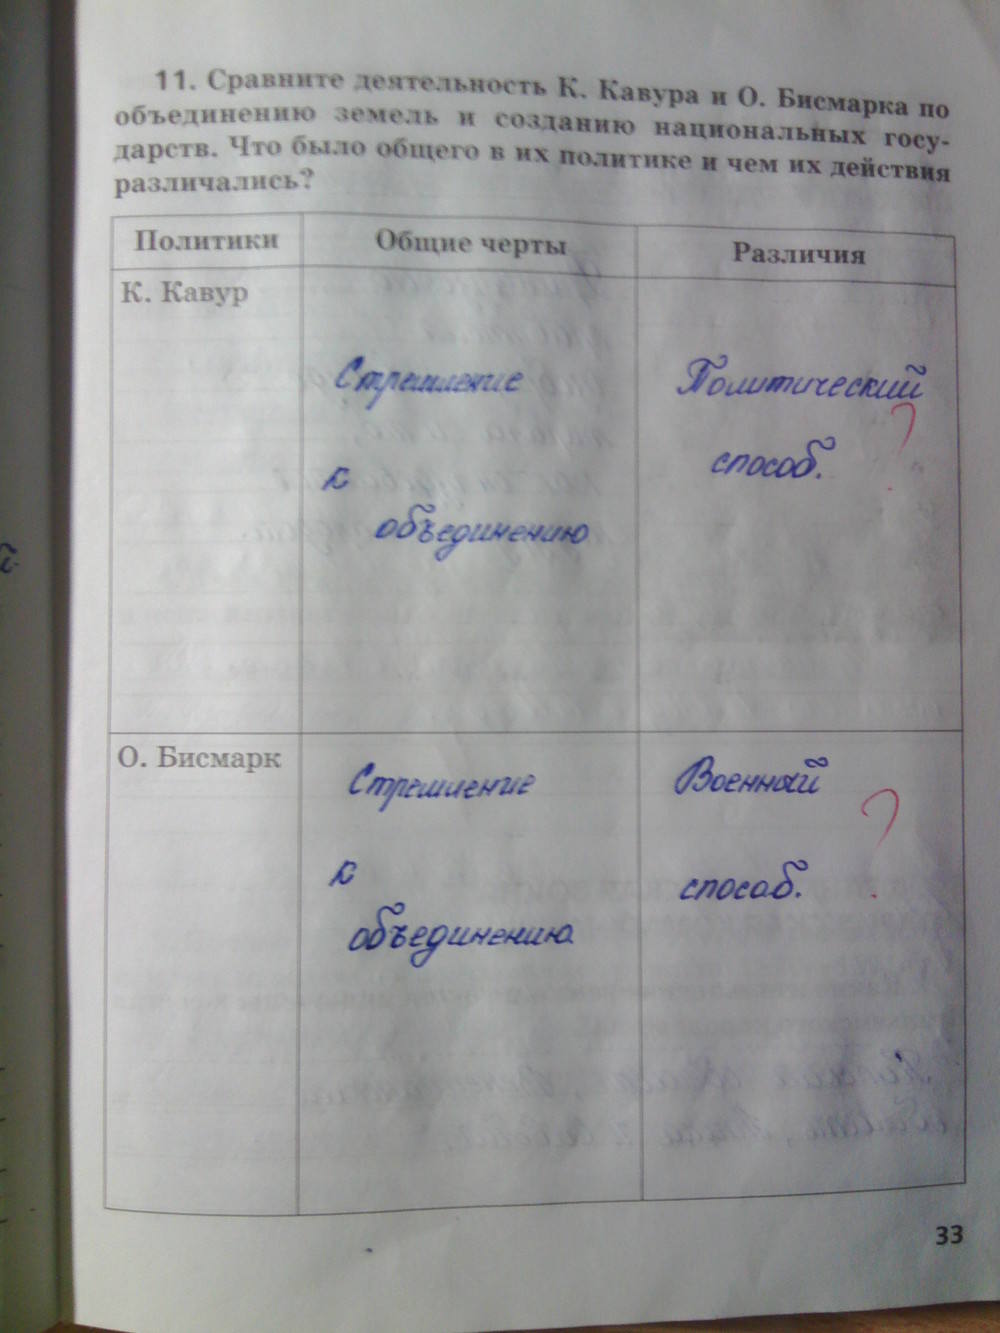 11. Сравните деятельность К. Кавура и О. Бисмарка по
объединению земель и созданию национальных госу-
дарств. Что было общего в их политике и чем их действия
различались?
Политики Общие черты Различия
К. Кавур
Стремление Политический
?
к способ.
объединению
О. Бисмарк
Стремление Военный
?
к способ.
объединению
33